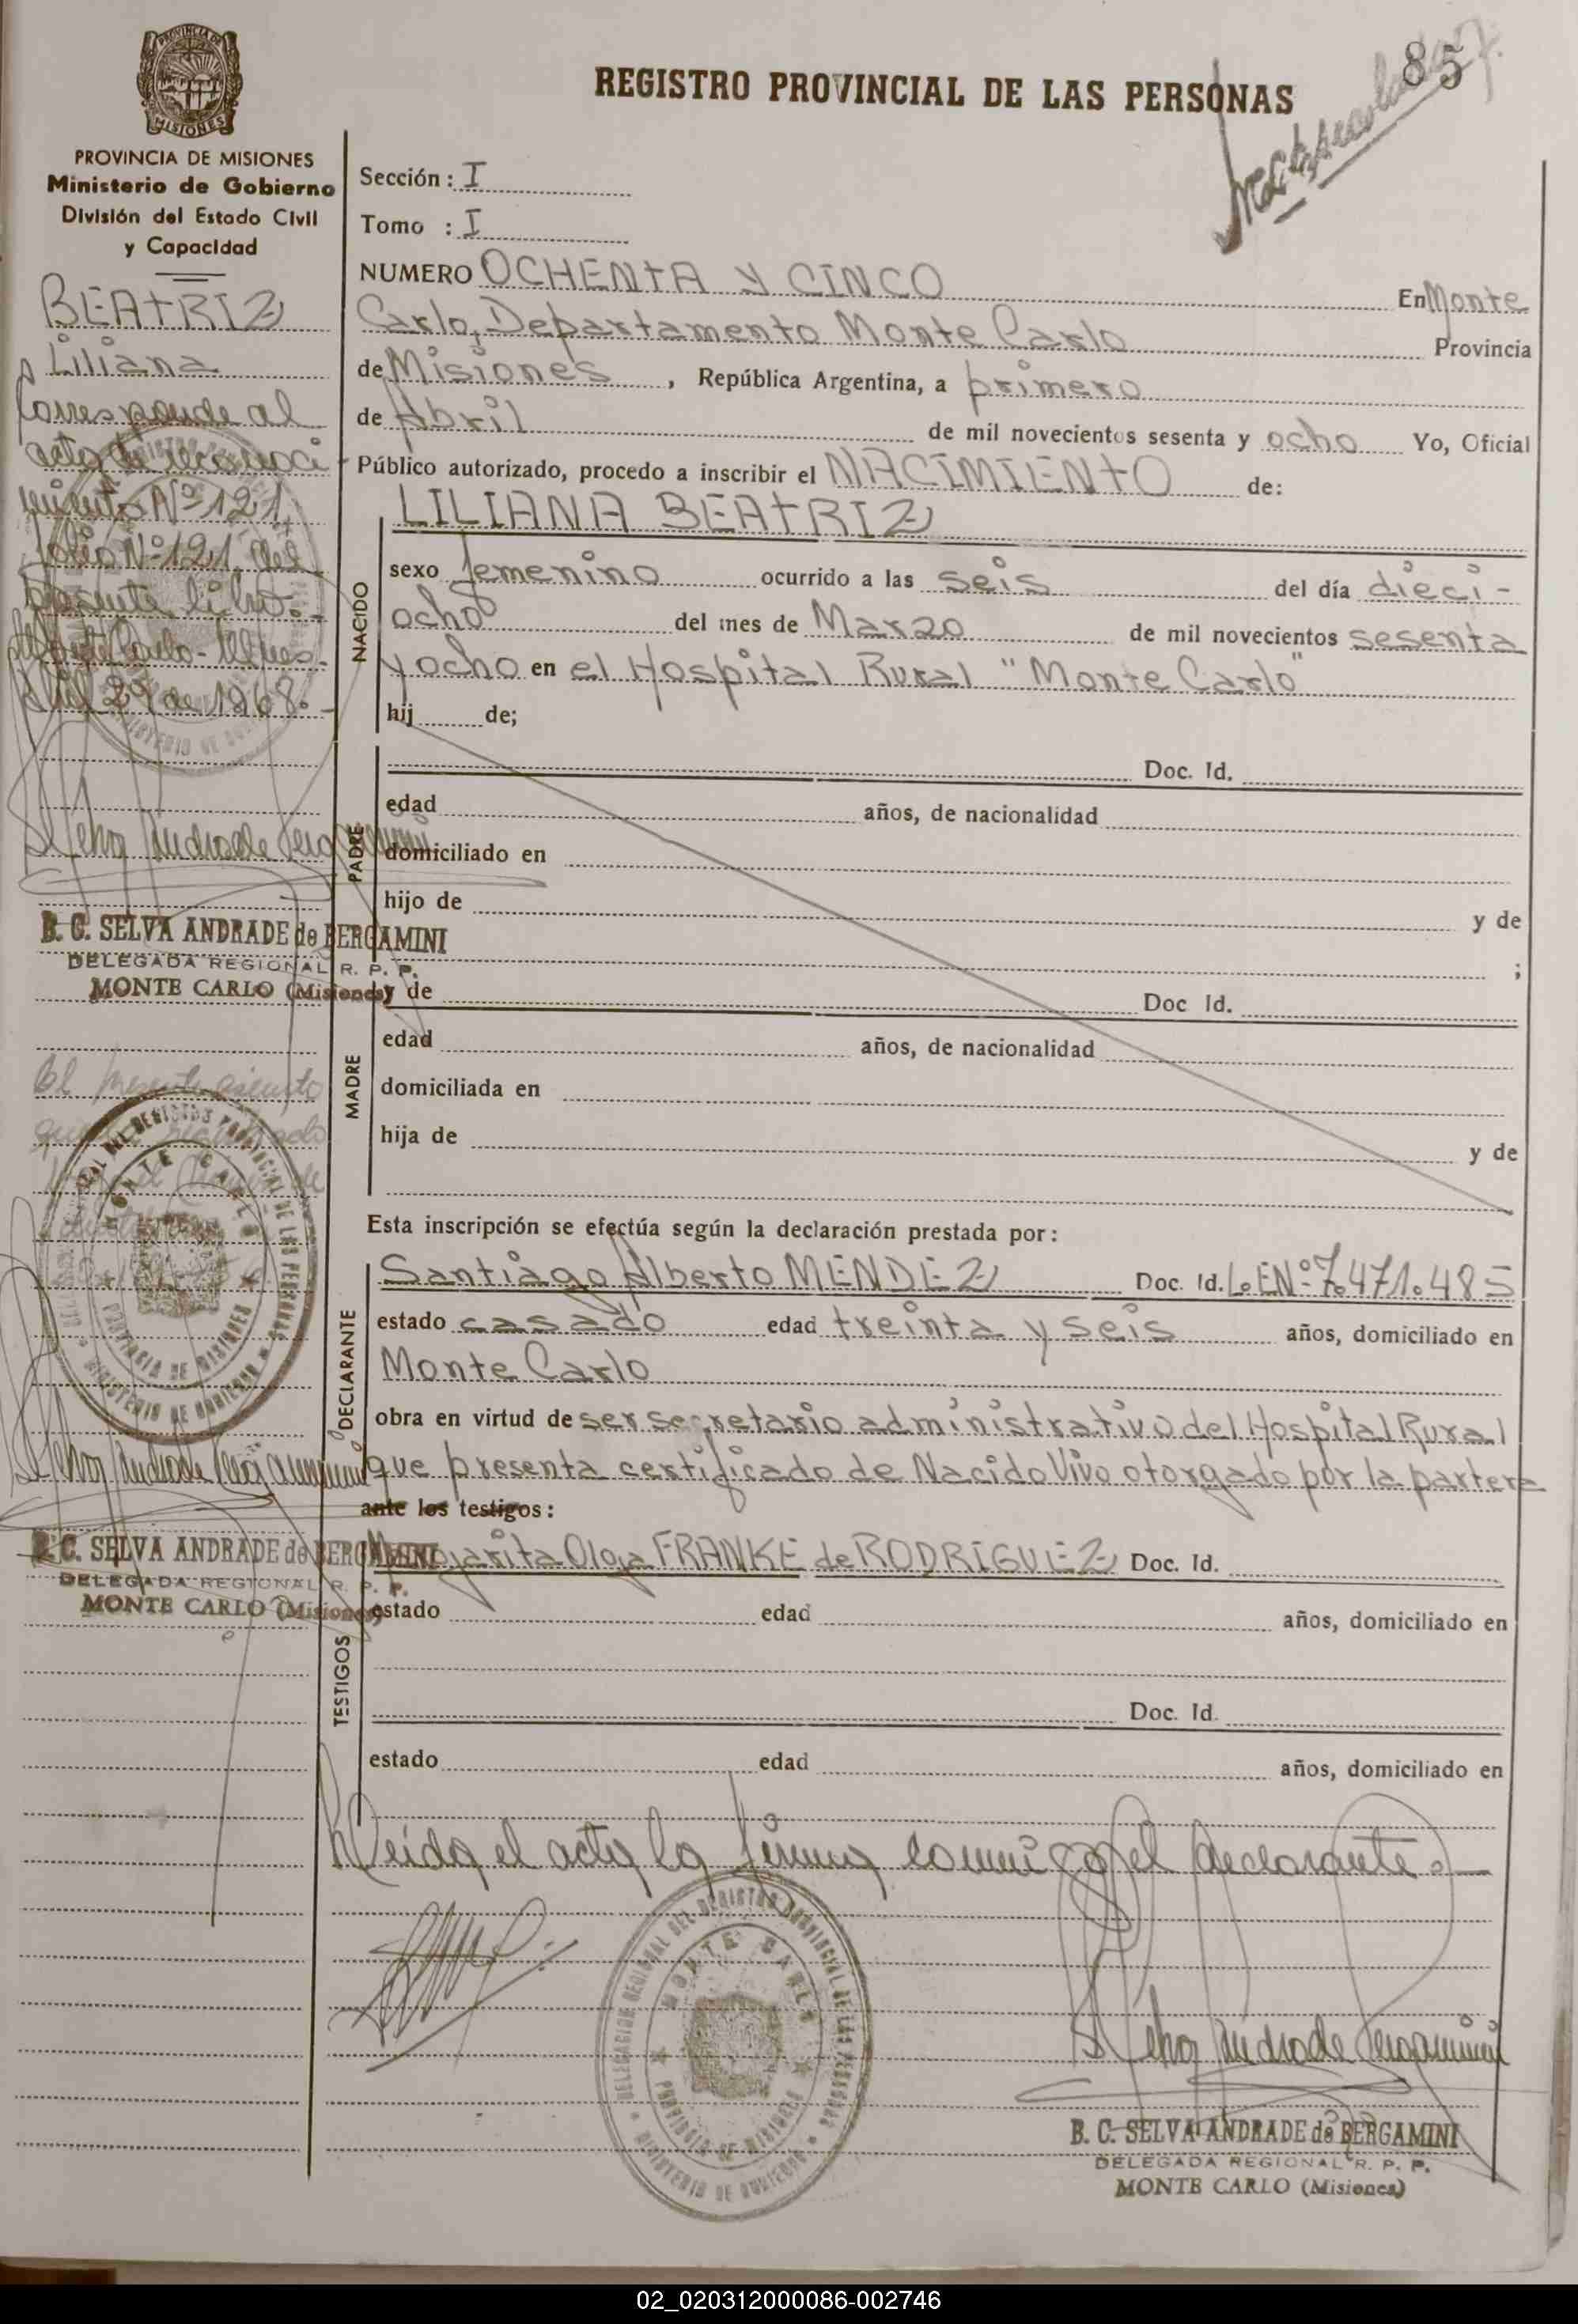 85
REGISTRO PROVINCIAL DE LAS PERSONAS
PROVINCIA DE
MISIONES
PROVINCIA DE MISIONES
Ministerio de Gobierno
División del Estado Civil
y Capacidad
BEATRIZ
Liliana
Corresponde al
acta de reconoci
miento Nº 121,
folio Nº 121 del
presente libro.-
Monte Carlo-Mnes
Abril 29 de 1968.-
B. C. SELVA ANDRADE de BERGAMINI
DELEGADA REGIONAL R. P. P.
MONTE CARLO (Misiones)
El presente asiento
B. C. SELVA ANDRADE de BERGAMINI
DELEGADA REGIONAL R. P. P.
MONTE CARLO (Misiones)
Sección: I
Tomo : I
NUMERO OCHENTA Y CINCO En Monte
Carlo, Departamento Monte Carlo Provincia
de Misiones, República Argentina, a primero
de Abril de mil novecientos sesenta y ocho Yo, Oficial
Público autorizado, procedo a inscribir el NACIMIENTO de:
LILIANA BEATRIZ
NACIDO
sexo femenino ocurrido a las seis del día dieci-
ocho del mes de Marzo de mil novecientos sesenta
y ocho en el Hospital Rural "Monte Carlo"
hij de;
PADRE
Doc. Id.
edad años, de nacionalidad
domiciliado en
hijo de y de
;
MADRE
y de Doc Id.
edad años, de nacionalidad
domiciliada en
hija de y de
Esta inscripción se efectúa según la declaración prestada por:
DECLARANTE
Santiago Alberto MENDEZ Doc. Id. L.ENº7.471.485
estado casado edad treinta y seis años, domiciliado en
Monte Carlo
obra en virtud de ser secretario administrativo del Hospital Rural
que presenta certificado de Nacido Vivo otorgado por la partera
ante los testigos:
TESTIGOS
Margarita Olga FRANKE de RODRIGUEZ Doc. Id.
estado edad años, domiciliado en
Doc. Id.
estado edad años, domiciliado en
Leída el acta la firma conmigo el declarante.-
DELEGACION REGIONAL DEL REGISTRO PROVINCIAL DE LAS PERSONAS
MONTE CARLO
PROVINCIA DE MISIONES
MINISTERIO DE GOBIERNO
B. C. SELVA ANDRADE de BERGAMINI
DELEGADA REGIONAL R. P. P.
MONTE CARLO (Misiones)
02_020312000086-002746